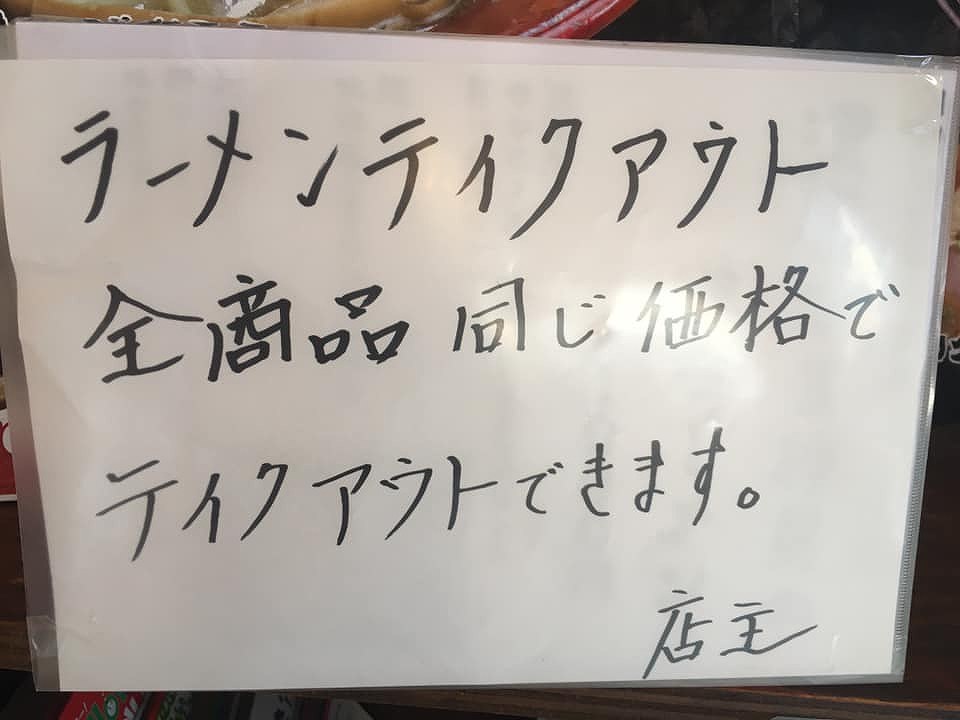 ラーメンテイクアウト
全商品 同じ価格で
テイクアウトできます。
店主